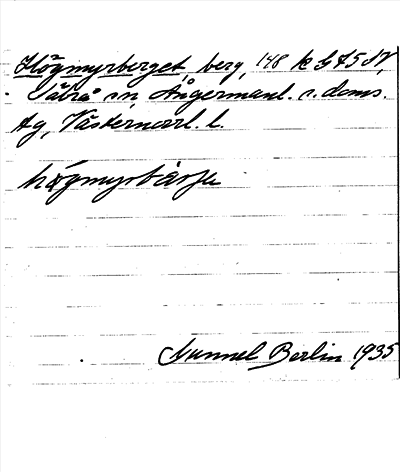 Högmyrberget, berg, 148 k G 75 SV,
Säbrå sn, Ångermanl. s. doms.
tg, Västernorrl. l.
högmyrbärje
Gunnel Berlin 1935